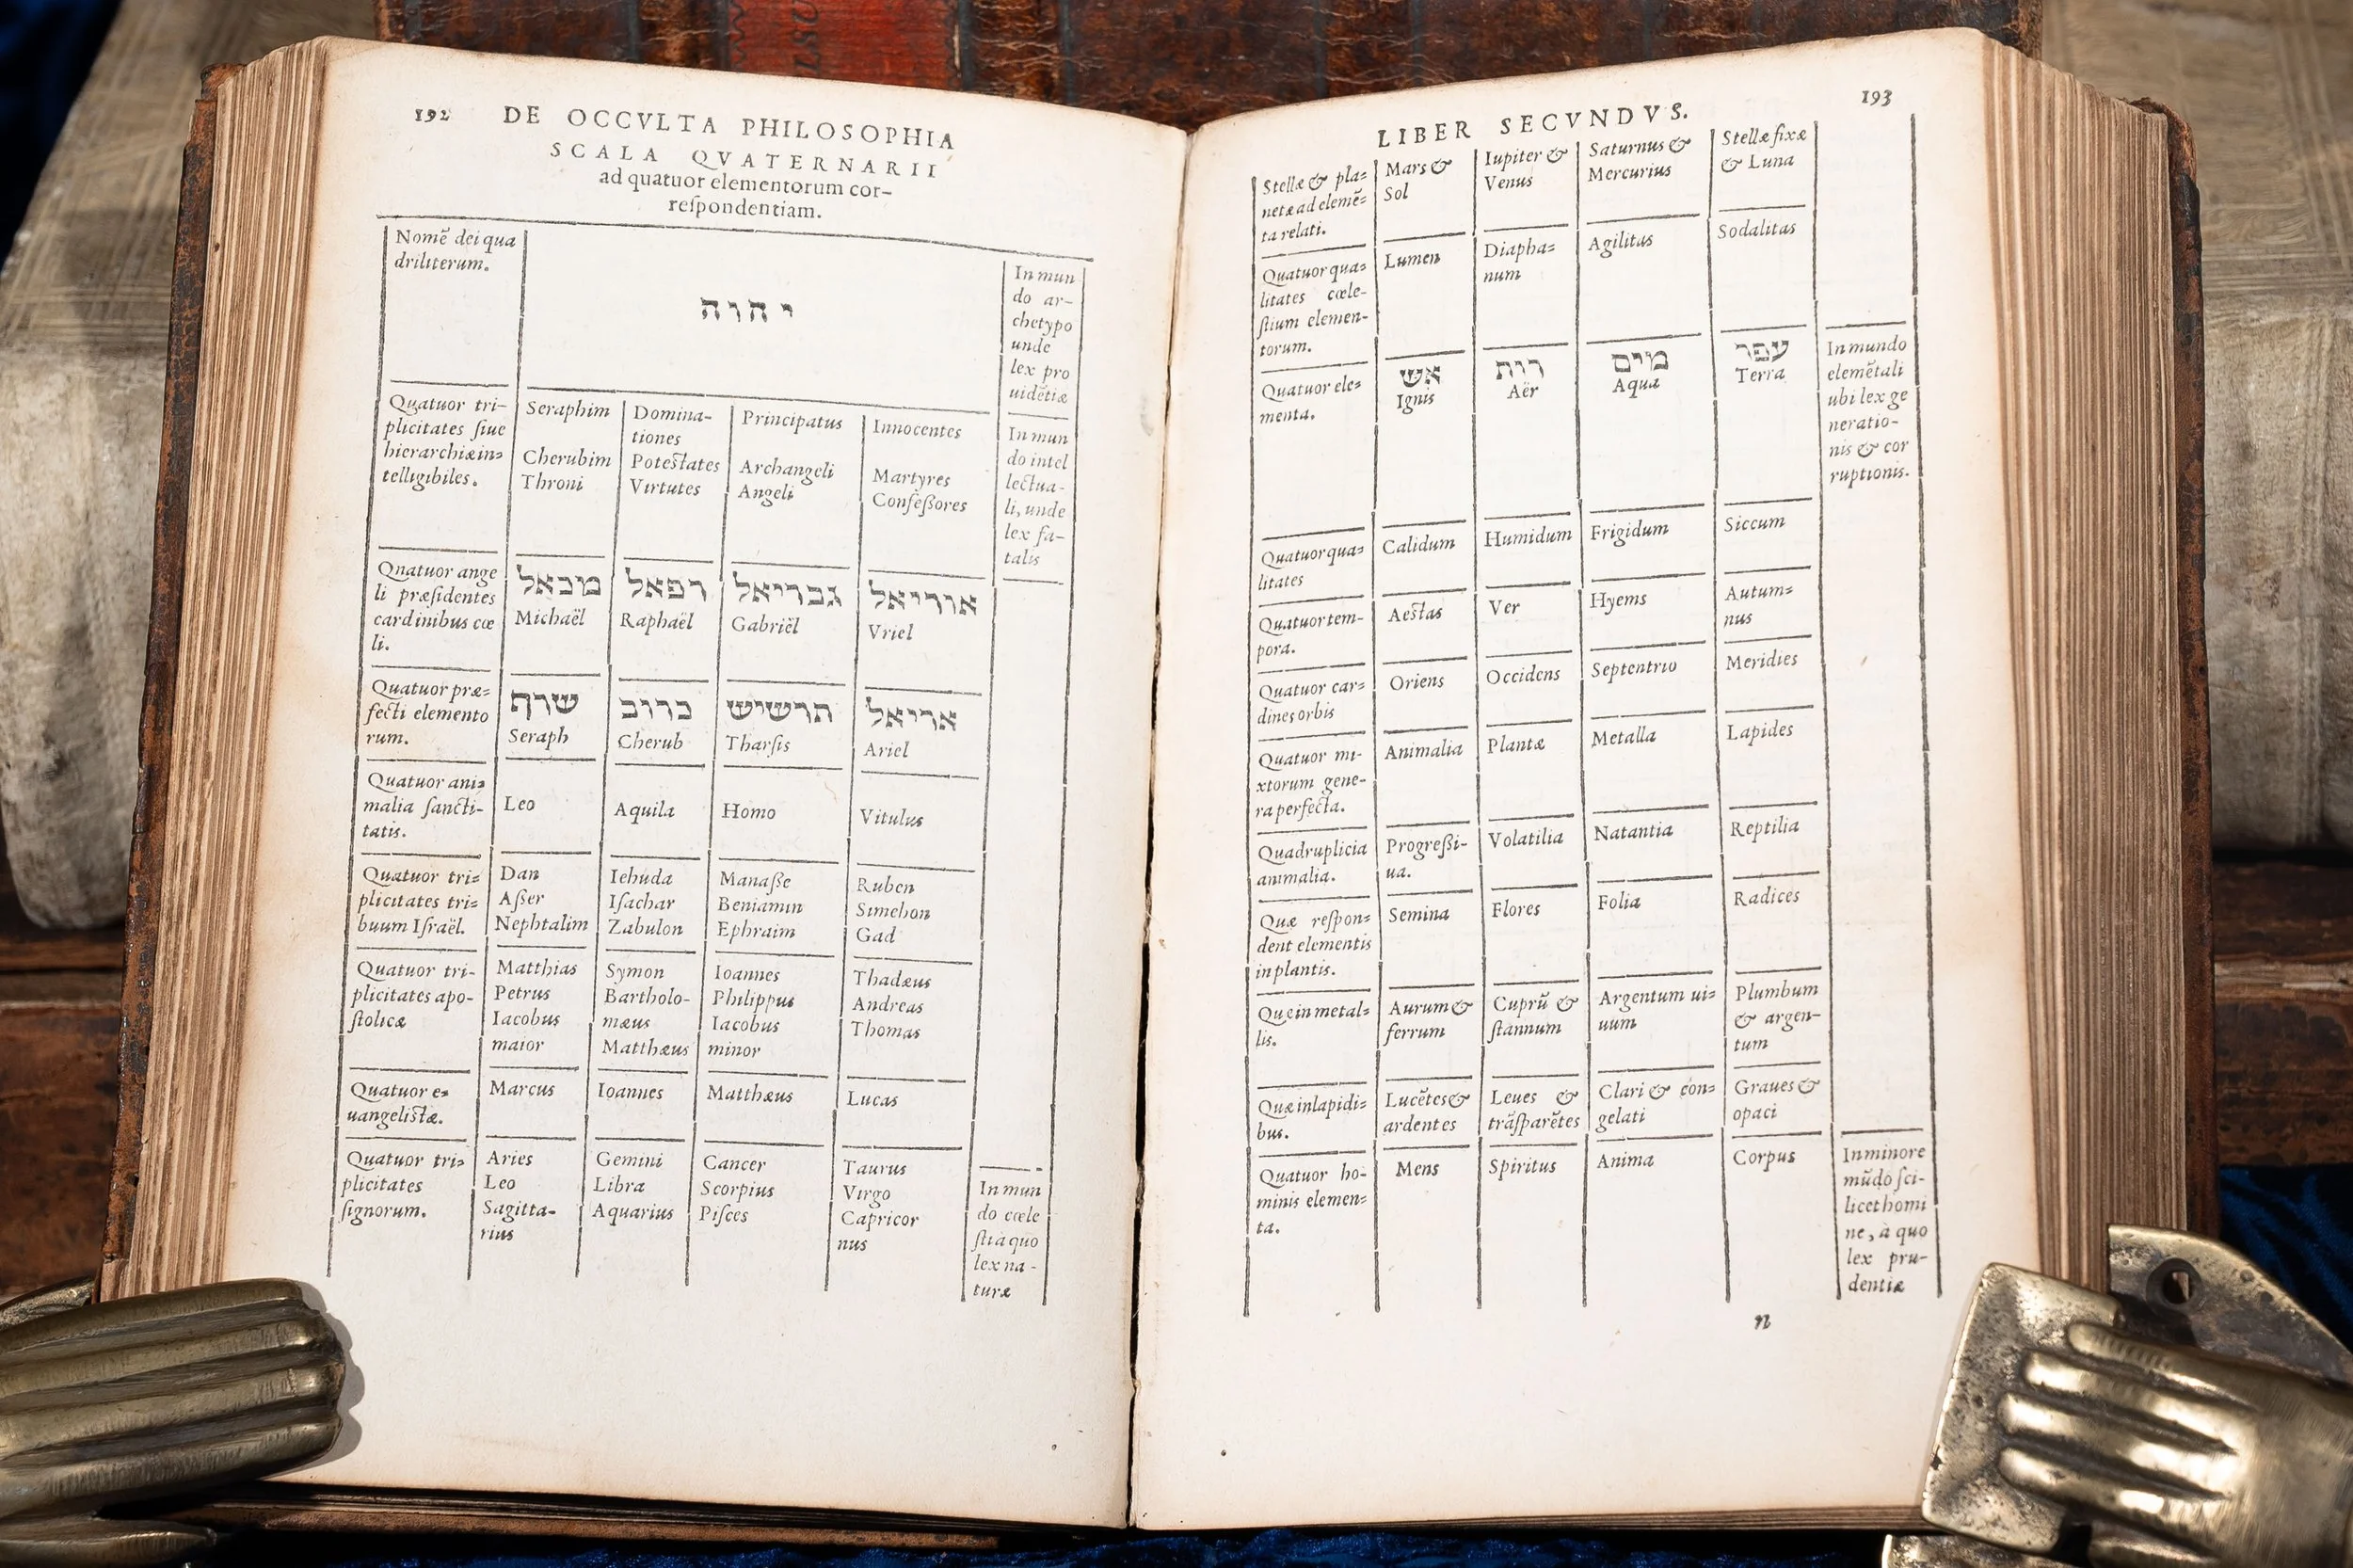 192 DE OCCVLTA PHILOSOPHIA
SCALA QVATERNARII
ad quatuor elementorum cor-
reſpondentiam.
Nomẽ dei qua
driliterum.
י הוה
In mun
do ar-
chetypo
unde
lex pro
uidẽtiæ
Quatuor tri-
plicitates ſiue
hierarchiæ in=
telligibiles.
Seraphim
Cherubim
Throni
Domina-
tiones
Poteſtates
Virtutes
Principatus
Archangeli
Angeli
Innocentes
Martyres
Confeßores
In mun
do intel
lectua-
li, unde
lex fa-
talis
Qnatuor ange
li præſidentes
cardinibus cœ
li.
מבאל
Michaël
רפאל
Raphaël
גבריאל
Gabriël
אוריאל
Vriel
Quatuor præ=
fecti elemento
rum.
שרף
Seraph
כרוב
Cherub
תרשיש
Tharſis
אריאל
Ariel
Quatuor ani=
malia ſancti-
tatis.
Leo
Aquila
Homo
Vitulus
Quatuor tri=
plicitates tri=
buum Iſraël.
Dan
Aſſer
Nephtalim
Iehuda
Iſachar
Zabulon
Manaße
Beniamin
Ephraim
Ruben
Simehon
Gad
Quatuor tri-
plicitates apo-
ſtolicæ
Matthias
Petrus
Iacobus
maior
Symon
Bartholo-
mæus
Matthæus
Ioannes
Philippus
Iacobus
minor
Thadæus
Andreas
Thomas
Quatuor e=
uangeliſtæ.
Marcus
Ioannes
Matthæus
Lucas
Quatuor tri=
plicitates
ſignorum.
Aries
Leo
Sagitta-
rius
Gemini
Libra
Aquarius
Cancer
Scorpius
Piſces
Taurus
Virgo
Capricor
nus
In mun
do cœle
ſti à quo
lex na-
turæ
LIBER SECVNDVS. 193
Stellæ & pla=
netæ ad elemẽ=
ta relati.
Mars &
Sol
Iupiter &
Venus
Saturnus &
Mercurius
Stellæ fixæ
& Luna
Quatuor qua=
litates cœle-
ſtium elemen-
torum.
Lumen
Diapha=
num
Agilitas
Sodalitas
Quatuor ele=
menta.
אש
Ignis
רות
Aër
מים
Aqua
עפר
Terra
In mundo
elemẽtali
ubi lex ge
neratio-
nis & cor
ruptionis.
Quatuor qua=
litates
Calidum
Humidum
Frigidum
Siccum
Quatuor tem-
pora.
Aeſtas
Ver
Hyems
Autum=
nus
Quatuor car=
dines orbis
Oriens
Occidens
Septentrio
Meridies
Quatuor mi-
xtorum gene-
ra perfecta.
Animalia
Plantæ
Metalla
Lapides
Quadruplicia
animalia.
Progreßi-
ua.
Volatilia
Natantia
Reptilia
Quæ reſpon=
dent elementis
in plantis.
Semina
Flores
Folia
Radices
Quæ in metal=
lis.
Aurum &
ferrum
Cuprũ &
ſtannum
Argentum ui=
uum
Plumbum
& argen-
tum
Quæ in lapidi=
bus.
Lucẽtes &
ardentes
Leues &
trãſparẽtes
Clari & con=
gelati
Graues &
opaci
Quatuor ho-
minis elemen=
ta.
Mens
Spiritus
Anima
Corpus
In minore
mũdo ſci-
licet homi
ne, à quo
lex pru-
dentiæ
n